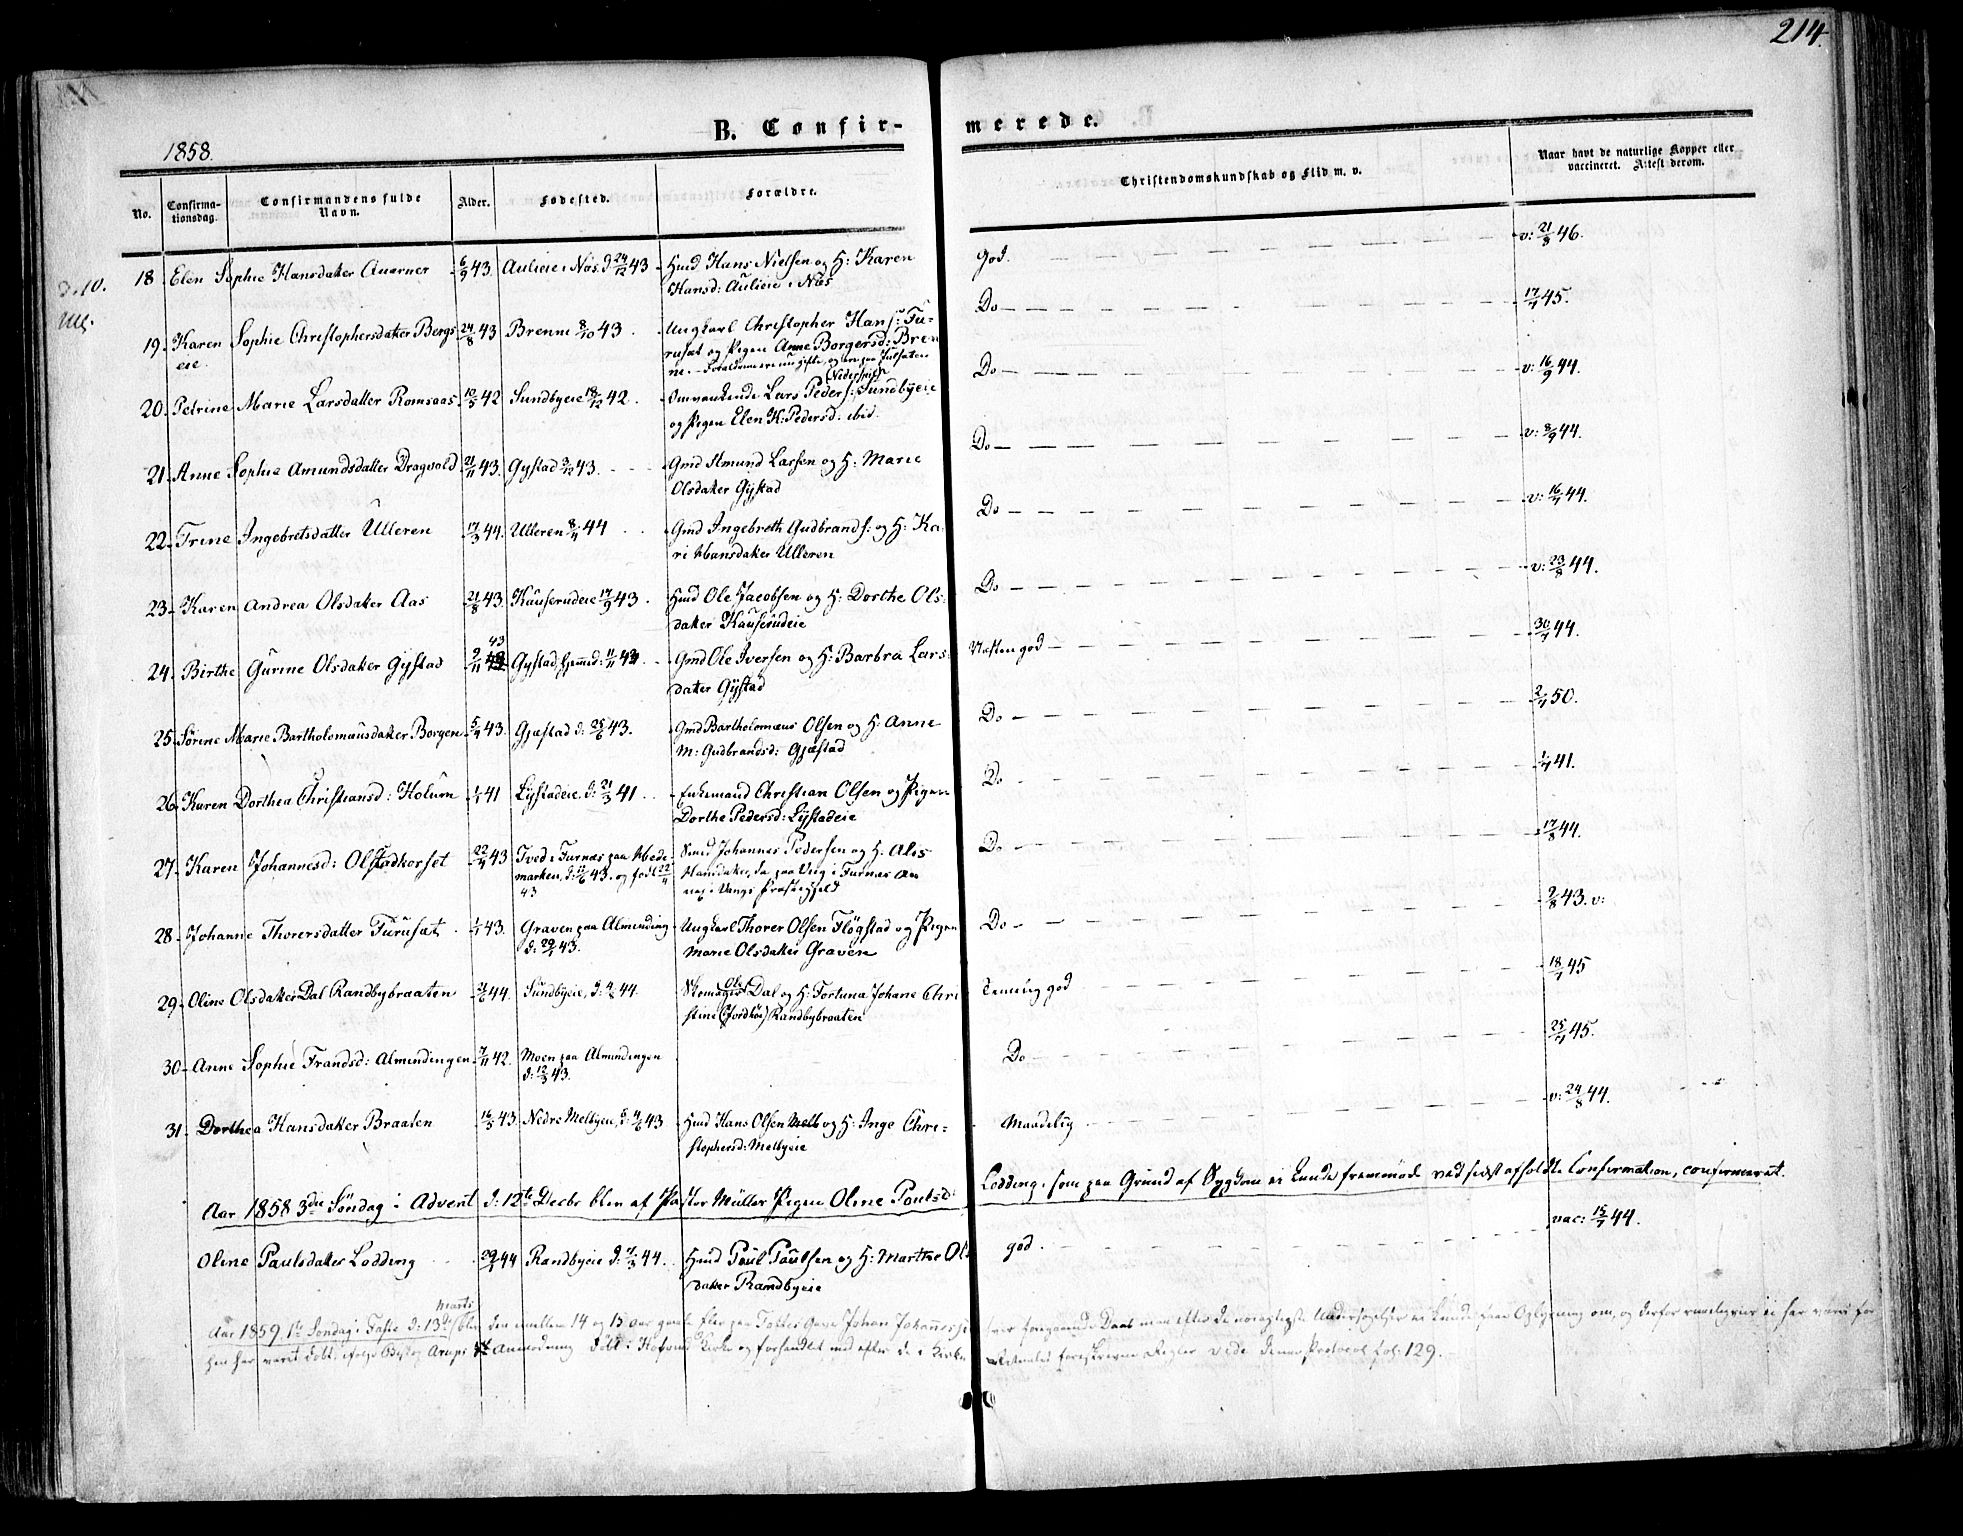 214.
B. Confir-
merede.
1858.
No.
Confirma-
tionsdag.
Confirmandens fulde
Navn.
Alder.
Fødested.
Forældre.
Christendomskundskab og Flid m. v.
Naar havt de naturlige Kopper eller
vaccineret. Attest derom.
18 Elen Sophie Hansdatter Auerner 6/9 43. Aulieie i Næs. d. 24/12 43 Hmd Hans Nielsen og H: Karen
Hansd: Aulieie i Næs
God. v: 21/8 46.
19. Karen Sophie Christophersdatter Bergs 24/8 43 Brenne 8/10 43. Ungkarl Christopher Hans: Fu-
eie. ruset og Pigen Anne Borgersd: Bren
ne.
Do 17/7 45.
20. Petrine Marie Larsdatter Romsaas 10/5 42 Sundbyeie 18/12 42. Omvankende Lars Peders: Sundbyeie
og Pigen Elen K: Pedersd: ibid.
Do v: 16/9 44.
21. Anne Sophie Amundsdatter Dragvold 21/11 43. Gystad 3/12 43. Gmd Amund Larsen og H: Marie
Olsdatter Gystad
Do v: 8/9 44.
22. Trine Ingebretsdatter Ulleren 17/3 44. Ulleren 8/4 44 Gmd Ingebreth Gudbrands: og H: Ka-
ri Hansdatter Ulleren
Do v: 16/7 44.
23. Karen Andrea Olsdatter Aas 21/8 43. Kauserudeie 17/9 43. Hmd Ole Jacobsen og H: Dorthe Ols-
datter Kauserudeie
Do v: 23/8 44.
24. Birthe Gurine Olsdatter Gystad 9/11 43 Gystad, hjemmed: 11/11 43. Gmd Ole Iversen og H: Barbra Lars-
datter Gystad
Næsten god 30/7 44.
25. Sørine Marie Bartholomæusdatter Borgen 5/4 43. Gjæstad d: 25/6 43. Gmd Bartholomæus Olsen og H: Anne
M: Gudbrandsd: Gjæstad
Do 2/7 50.
26. Karen Dorthea Christiansd: Holum 1/1 41 Lystadeie. d: 21/3 41. Enkemand Christian Olsen og Pigen
Dorthe Pedersd: Lystadeie
Do 1/7 41.
27. Karen Johannesd: Olstadkorset 22/4 43 Tved i Furnæs paa Hede-
marken, d: 12/6 43. og født 22/4
43
Smd Johannes Pedersen og H. Alis
Hansdatter, da paa Veig i Furnæs An
nex i Vangs Præstegjeld
Do 17/8 44.
28. Johanne Thorersdatter Furuset 1/1 43. Graven paa Almending
d: 29/1 43. Ungkarl Thorer Olsen Fløgstad og Pigen
Marie Olsdatter Graven
Do 2/8 43. v:
29. Oline Olsdatter Dal Randbybraaten 44. Sundbyeie, d: 4/8 44. Skomager Ole Dal og H: Fortuna Johane Chri
stine (Jordkøe) Randbybraaten
Temmelig god 18/7 45
30. Anne Sophie Frandsd: Almindingen 7/11 42. Moen paa Almindingen
d: 12/3 43.
Do 25/7 45.
31. Dorthea Hansdatter Braaten 16/5 43. Nedre Melbyeie, d: 4/6 43 Hmd Hans Olsen Melb og H: Inge Chri-
stophersd: Melbyeie
Maadelig v: 24/8 44.
Aar 1858 3die Søndag i Advent d: 12te Decbr blev af Pastor Müller Pigen Oline Paulsd: Lodding, som paa Grund af Sygdom ei kunde fremmøde ved sidst afholdte Confirmation, confirmeret.
Oline Paulsdatter Lodding 29/1 44 Randbyeie d: 7/3 44. Hmd Poul Poulsen og H: Marthe Ols
datter Randbyeie
god. vac: 15/7 44.
Aar 1859, 1te Søndag i Faste d: 13de Marts blev den mellem 14 og 15 Aar gamle Johan Johannes
foregaaende Daab man efter de nøiagtigste Undersøgelser ei kunde faae Oplysning om, og derfor ei her være før
her været døbt, ifølge Biskop Arups Anmodning døbt i Hofvind Kirke og forhandlet med efter de i Kirke
Ritualet foreskrevne Regler vide denne Protocol fol: 129.